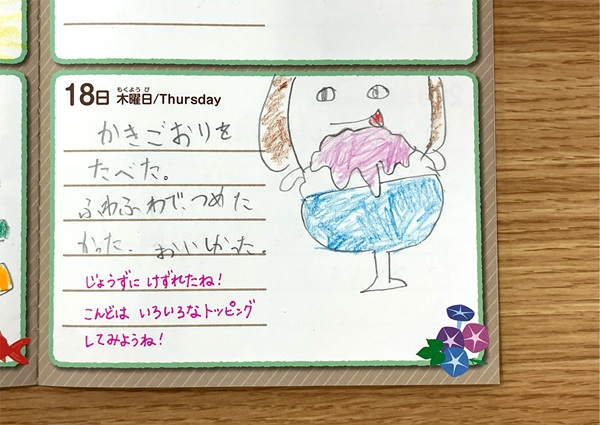 18日 木曜日/Thursday
もくよう び
かきごおりを
たべた。
ふわふわで、つめた
かった、おいしかった。
じょうずに けずれたね!
こんどは いろいろなトッピング
してみようね!